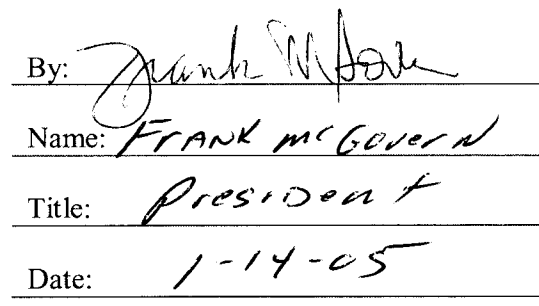 By: Frank McGovern
Name: Frank McGovern
Title: President
Date: 1-14-05